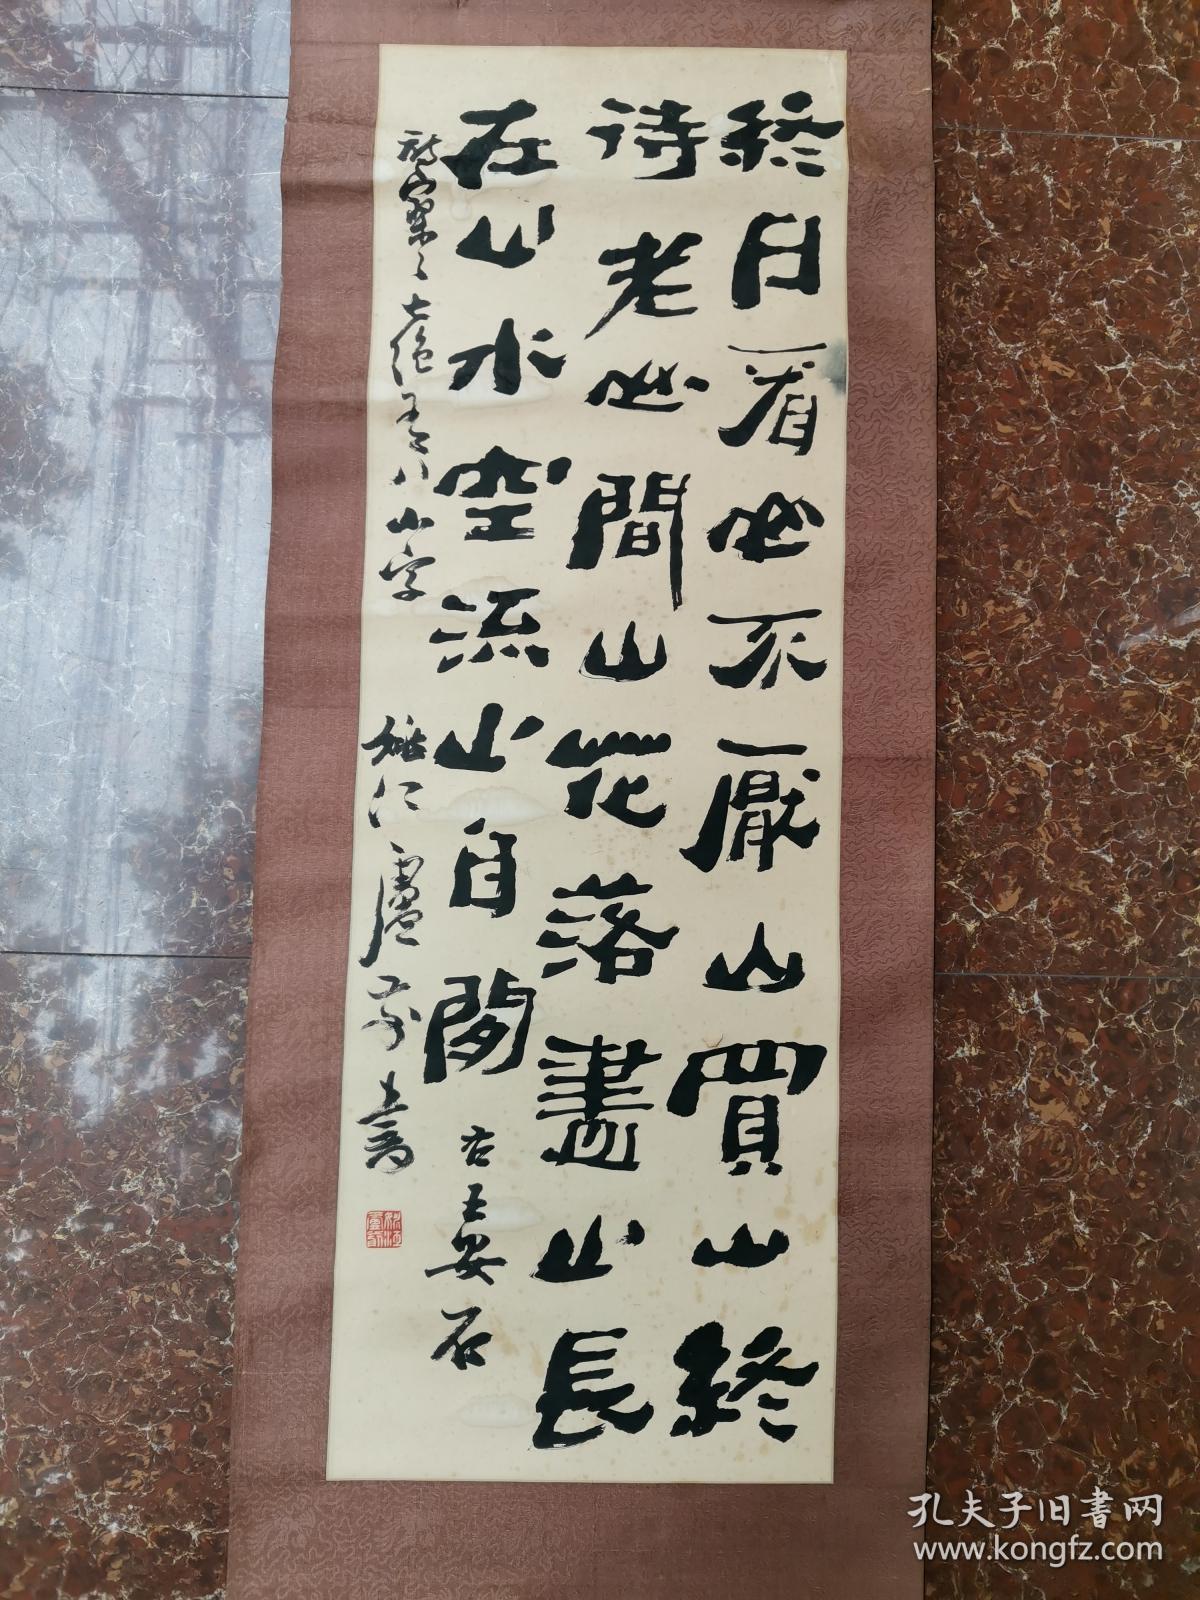 終日看山不厭山買山終
待老山間山花落盡山長
在山水空流山自閒 右王安石
七絕 山字 盧 書
孔夫子旧书网
www.kongfz.com